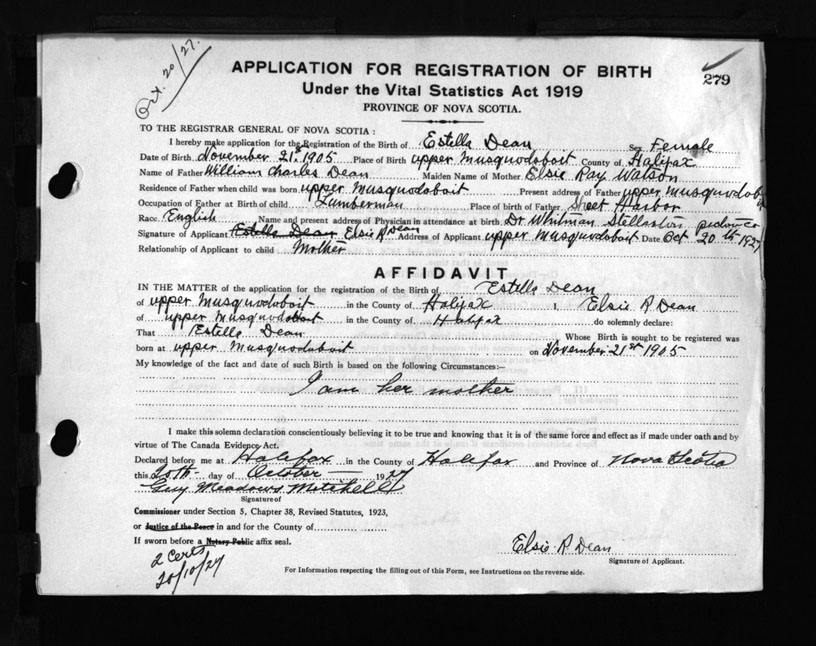 Oct. 20/27.
APPLICATION FOR REGISTRATION OF BIRTH
279
Under the Vital Statistics Act 1919
PROVINCE OF NOVA SCOTIA.
TO THE REGISTRAR GENERAL OF NOVA SCOTIA :
I hereby make application for the Registration of the Birth of Estella Dean Sex Female
Date of Birth November 21st 1905 Place of Birth upper Musquodoboit County of Halifax
Name of Father William Charles Dean Maiden Name of Mother Elsie Ray Watson
Residence of Father when child was born upper Musquodoboit Present address of Father upper Musquodoboit
Occupation of Father at Birth of child Lumberman Place of birth of Father Sheet Harbor
Race English Name and present address of Physician in attendance at birth Dr Whitman Stellarton pictou co
Signature of Applicant Estella Dean Elsie R Dean Address of Applicant upper Musquodoboit Date Oct 20th 1927
Relationship of Applicant to child Mother
AFFIDAVIT
IN THE MATTER of the application for the registration of the Birth of Estella Dean
of upper Musquodoboit in the County of Halifax I, Elsie R Dean
of upper Musquodoboit in the County of Halifax do solemnly declare:
That Estella Dean Whose Birth is sought to be registered was
born at upper Musquodoboit on November 21st 1905
My knowledge of the fact and date of such Birth is based on the following Circumstances:—
I am her mother
I make this solemn declaration conscientiously believing it to be true and knowing that it is of the same force and effect as if made under oath and by
virtue of The Canada Evidence Act.
Declared before me at Halifax in the County of Halifax and Province of Nova Scotia
this 20th day of October 1927
Guy Meadows Mitchell
Signature of
Commissioner under Section 5, Chapter 38, Revised Statutes, 1923,
or Justice of the Peace in and for the County of
If sworn before a Notary Public affix seal.
2 Certs
20/10/27
Elsie R Dean
Signature of Applicant.
For Information respecting the filling out of this Form, see Instructions on the reverse side.